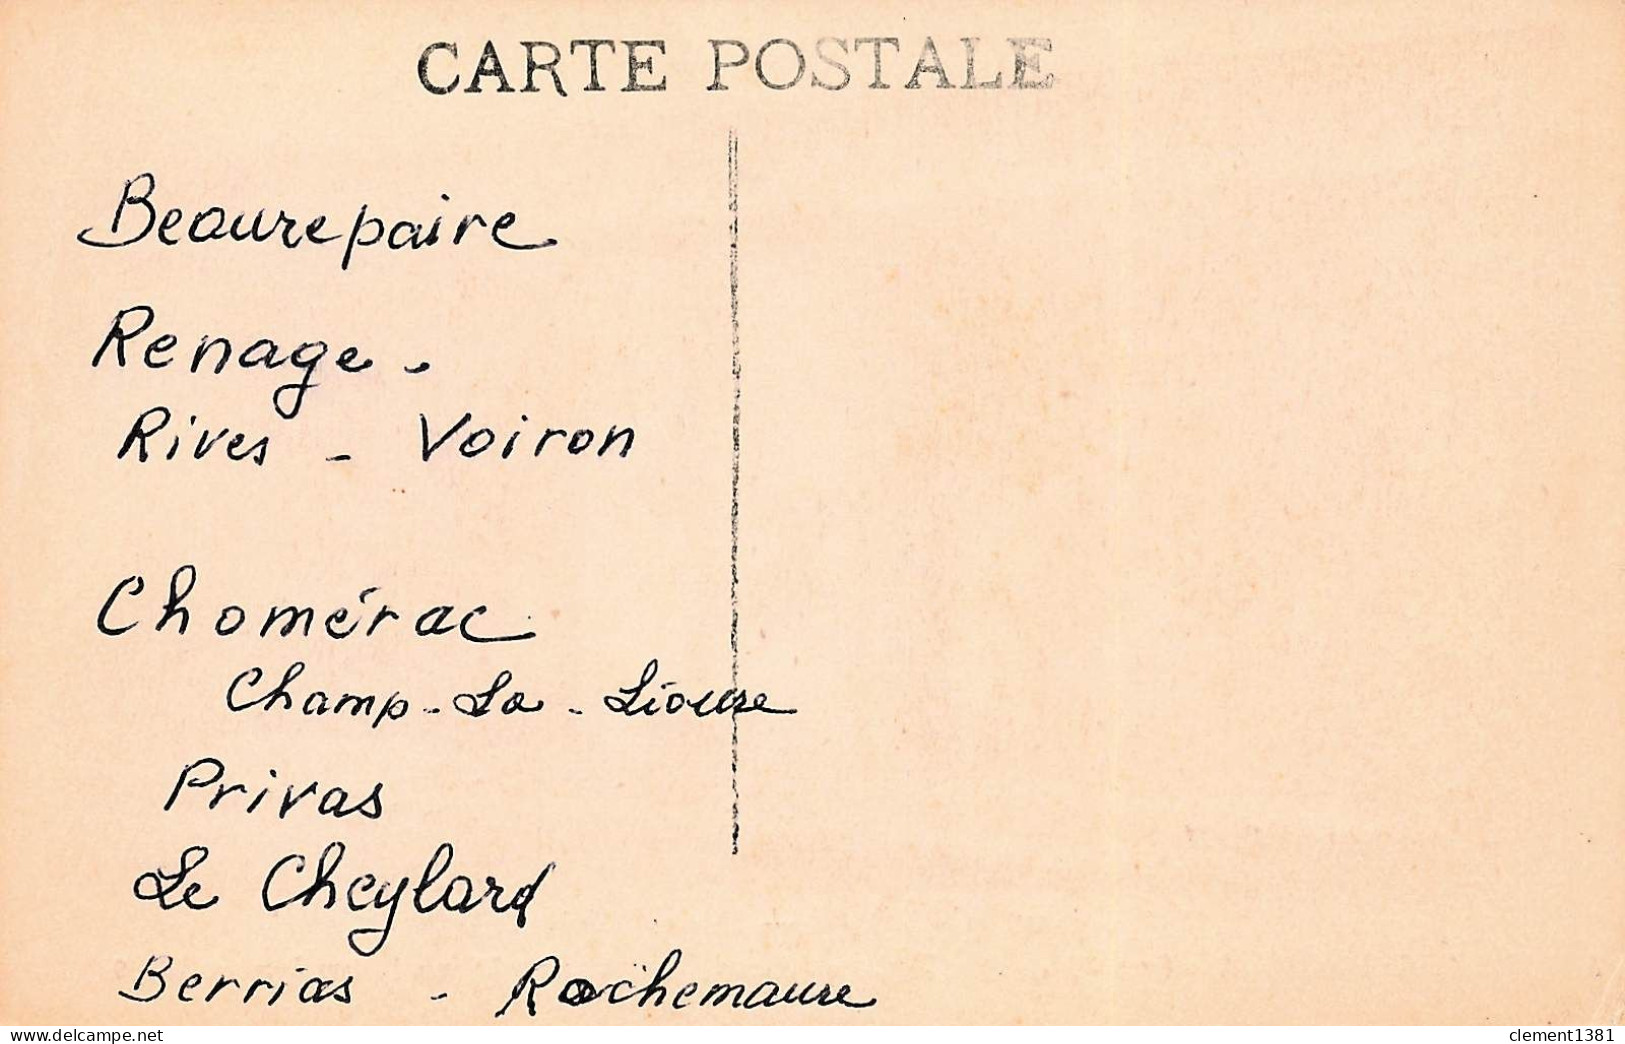 CARTE POSTALE
Beaurepaire
Renage -
Rives - Voiron
Chomérac
Champ - La - Lioure
Privas
Le Cheylard
Berrias - Rochemaure
delcampe.net
clement1381